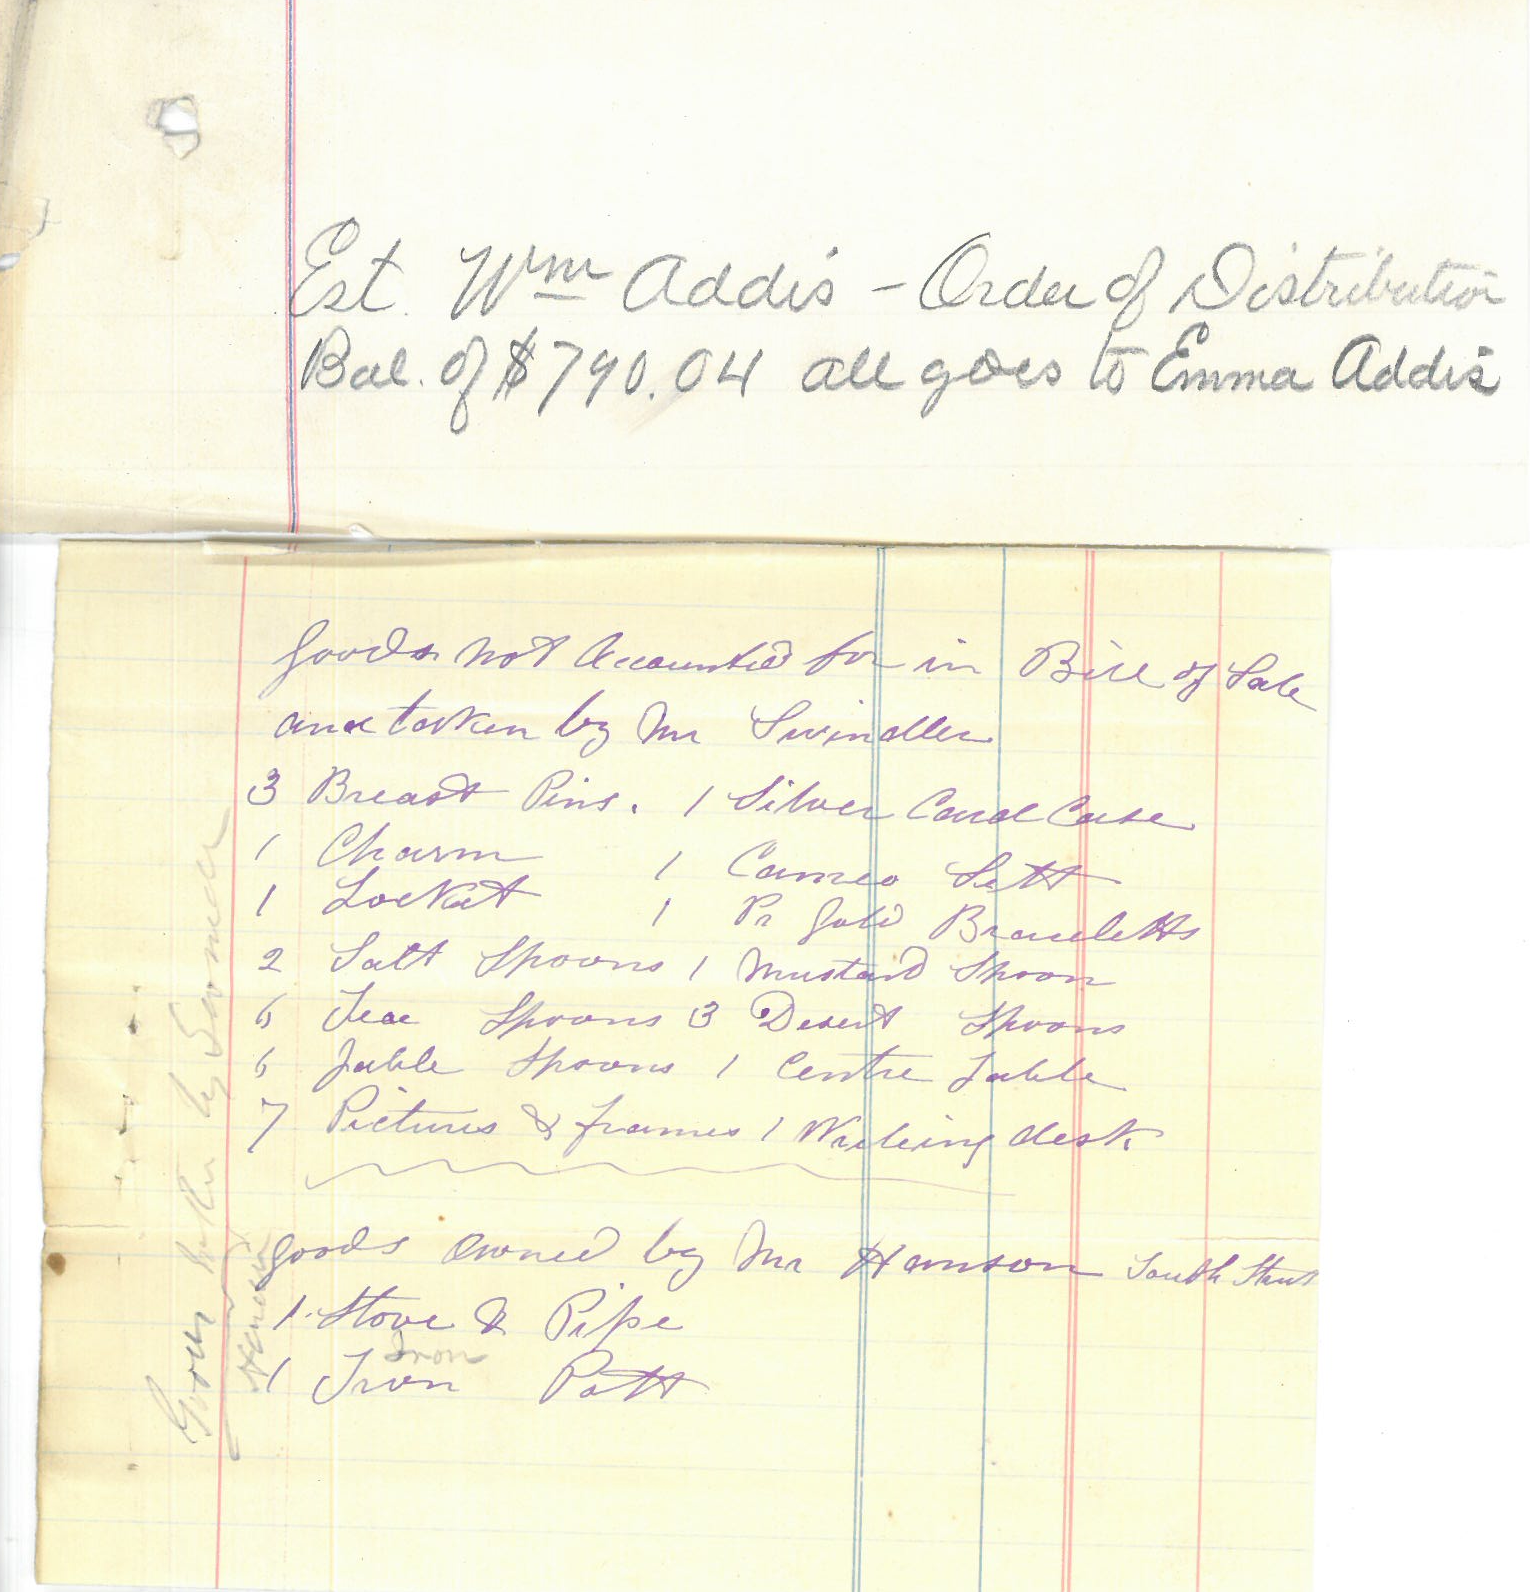 Est. Wm Addis - Order of Distribution
Bal. of $790.04 all goes to Emma Addis
Goods not Accounted for in Bill of Sale
and taken by Mr Swindler
3 Breast Pins. 1 Silver Card Case
1 Charm 1 Cameo Sett
1 Locket 1 Pr Gold Braceletts
2 Salt Spoons 1 Mustard Spoon
6 Tea Spoons 3 Desert Spoons
6 Table Spoons 1 Centre Table
7 Pictures & frames 1 Writeing desk
Goods Owned by Mr Hanson South Street
1 Stove & Pipe
Iron
1 Iron Pott
Goods by